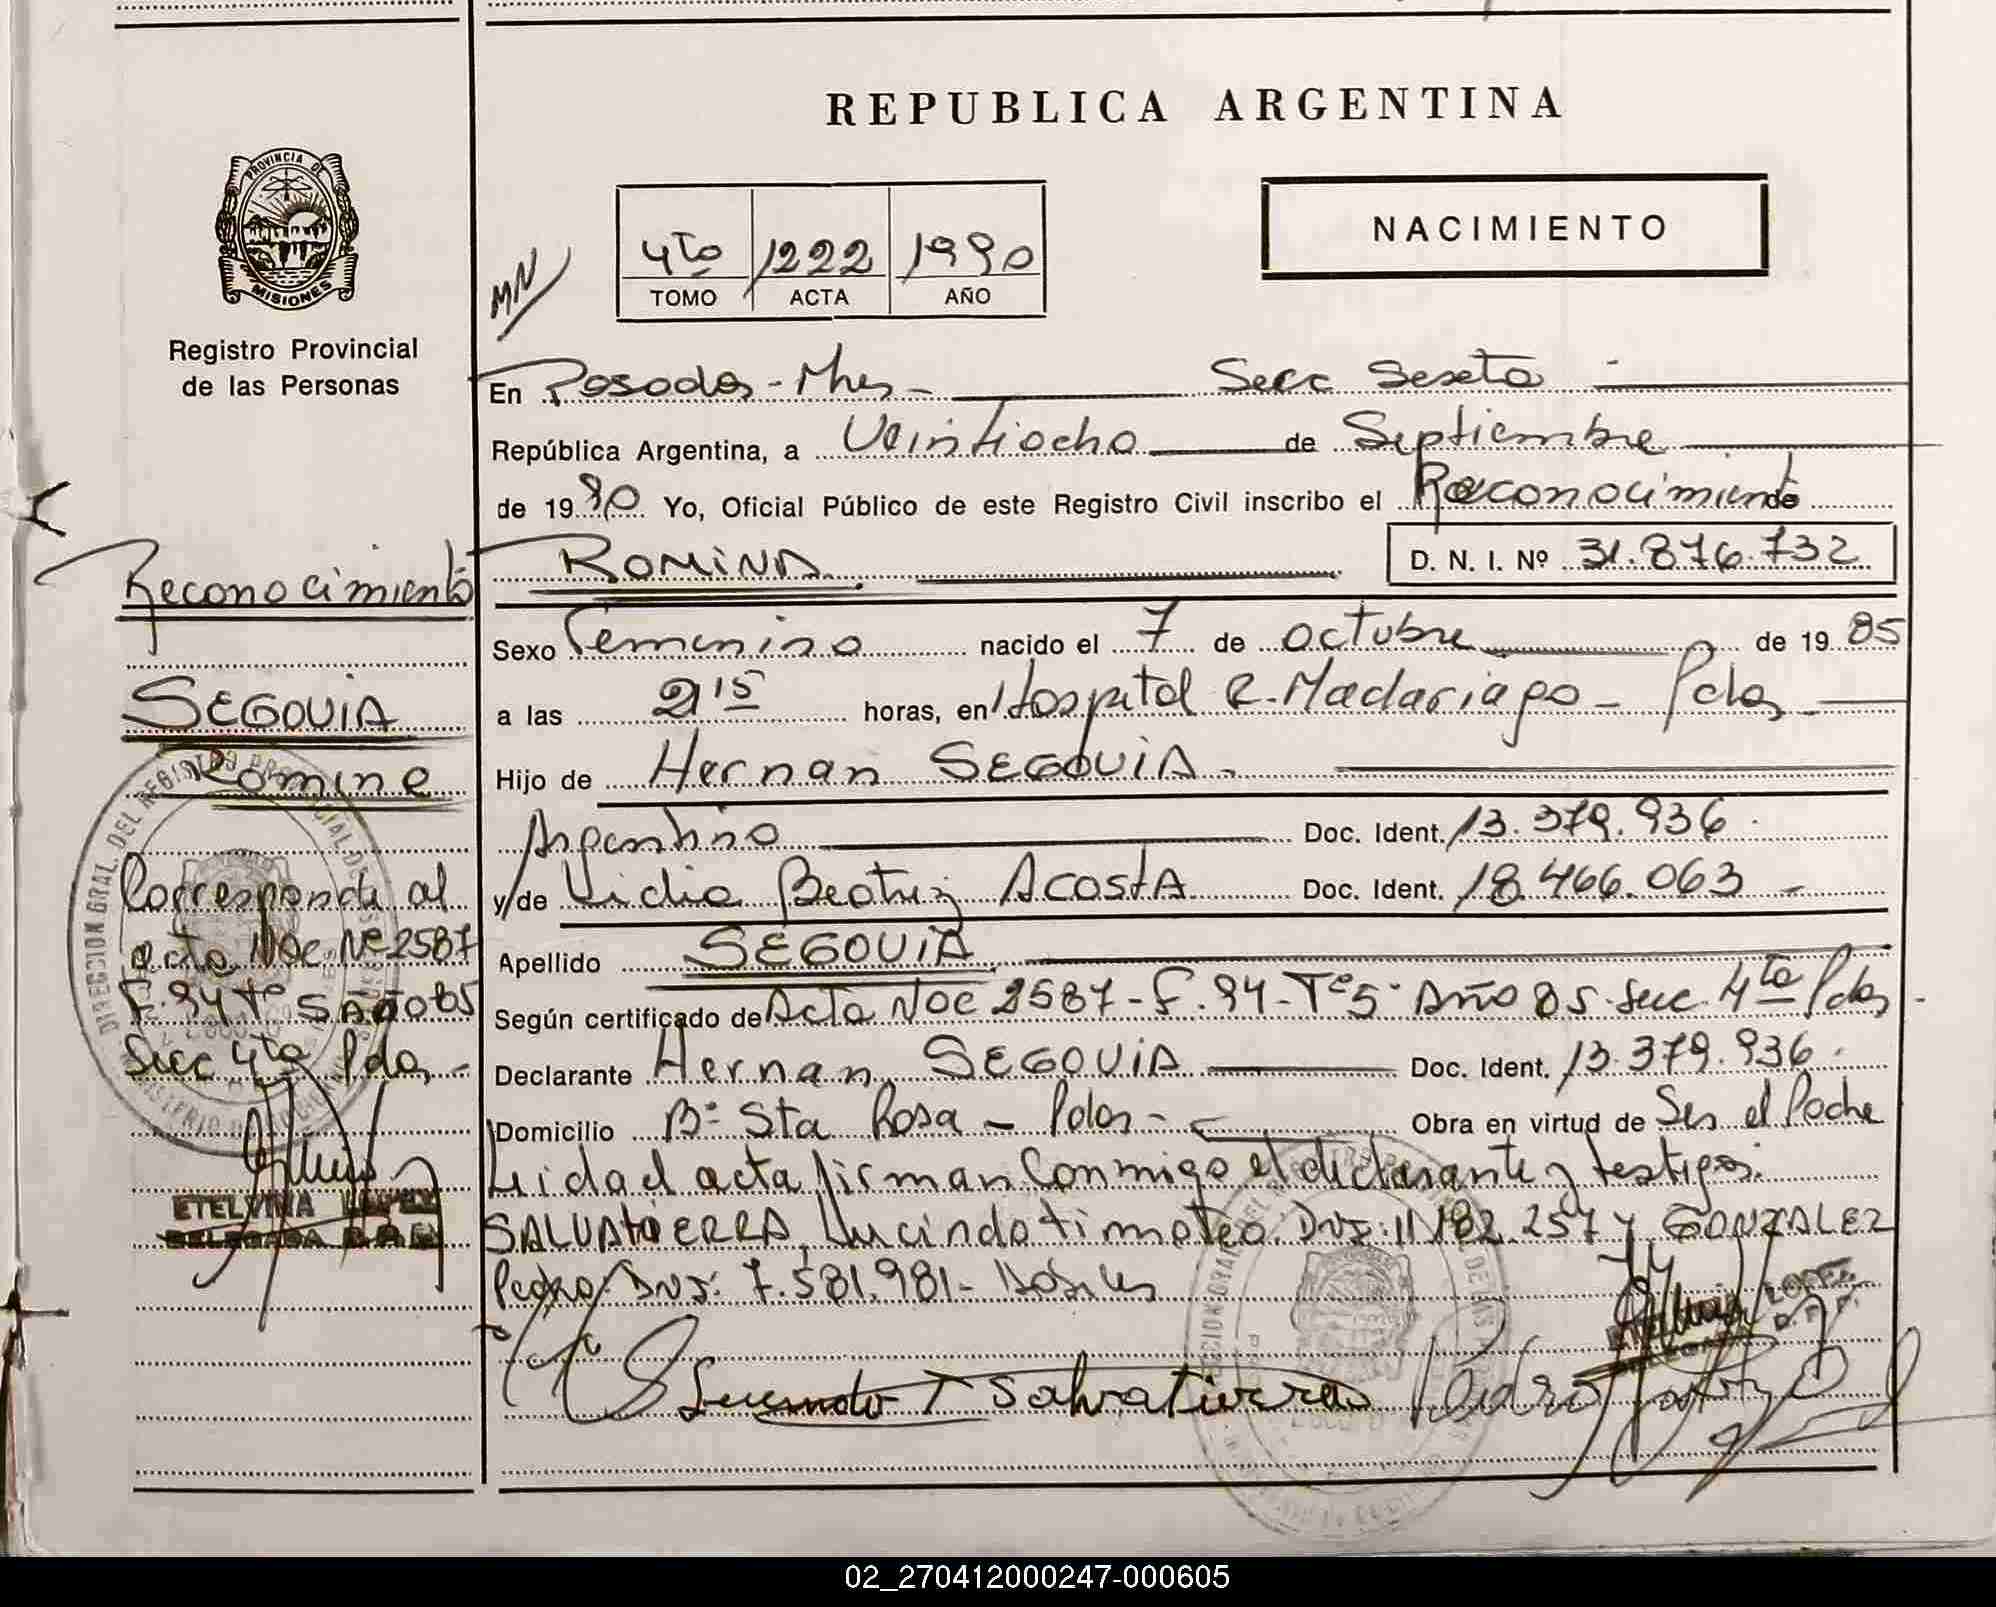 REPUBLICA ARGENTINA
PROVINCIA DE
MISIONES
Registro Provincial
de las Personas
MN
4to 1222 1990
TOMO ACTA AÑO
NACIMIENTO
En Posadas - Mnes - Secc Sexta -
República Argentina, a Veintiocho de Septiembre
de 1990 Yo, Oficial Público de este Registro Civil inscribo el Reconocimiento de
ROMINA D. N. I. Nº 31.876.732
Sexo Femenino nacido el 7 de octubre de 1985
a las 2 15 horas, en Hospital R. Madariaga - Pdas -
Hijo de Hernan SEGOVIA -
Argentino Doc. Ident. 13.379.936.
y/de Lidia Beatriz ACOSTA Doc. Ident. 18.466.063 -
Apellido SEGOVIA
Según certificado de Acta Nac 2587 - F. 94 - Tº 5 - Año 85 - Secc. 4ta Pdas -
Declarante Hernan SEGOVIA Doc. Ident. 13.379.936.
Domicilio Bº Sta Rosa - Pdas - Obra en virtud de Ser el Padre
Leida el acta firman Conmigo el declarante y testigos:
SALVATIERRA, Lucindo timoteo. DNI: 11.182.257 y GONZALEZ
Pedro DNI: 7.581.981 -
Lucindo T Salvatierra Pedro
Reconocimiento
SEGOVIA
Romina
Corresponde al
acta Nac. Nº 2587
F. 94 Tº 5 Año 85
Secc 4ta Pdas -
ETELVINA
02_270412000247-000605